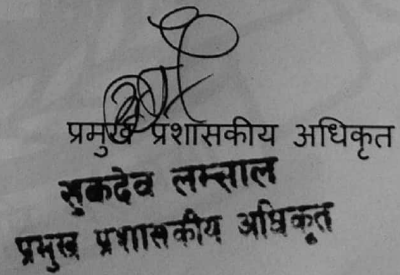 प्रमुख प्रशासकीय अधिकृत
सुकदेव लम्साल
प्रमुख प्रशासकीय अधिकृत